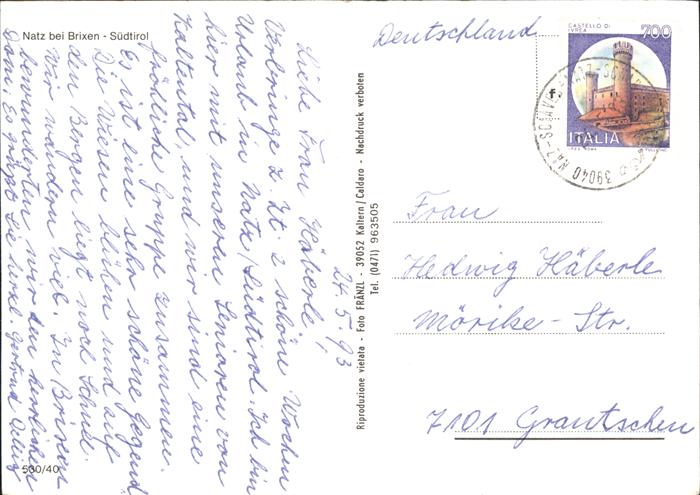 Natz bei Brixen - Südtirol
24. 5. 93
Liebe Frau Häberle,
Verbringe z. Zt. 2 schöne Wochen
Urlaub in Natz/Südtirol. Ich bin
hier mit unseren Senioren von
Kaltental, und wir sind eine
fröhliche Gruppe zusammen.
Es ist eine sehr schöne Gegend
Die Wiesen blühen und auf
den Bergen liegt noch Schnee.
Wir wandern viel. In Brixen
bewunderten wir den herrlichen
Dom. Es grüßt Sie herzl. Gertrud
530/40
Riproduzione vietata - Foto FRÄNZL - 39052 Kaltern / Caldaro - Nachdruck verboten
Tel. (0471) 963505
Deutschland
f.
CASTELLO DI
IVREA
700
ITALIA
39040 NAZ-
Frau
Hedwig Häberle
Mörike-Str.
7101 Grantschen